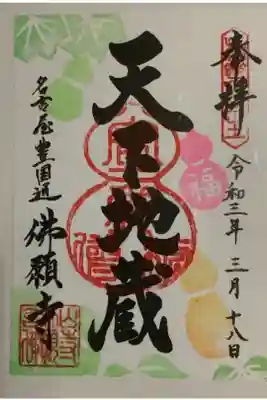 奉拝
令和三年三月十八日
天下地蔵
福
名古屋豊国通
佛願寺